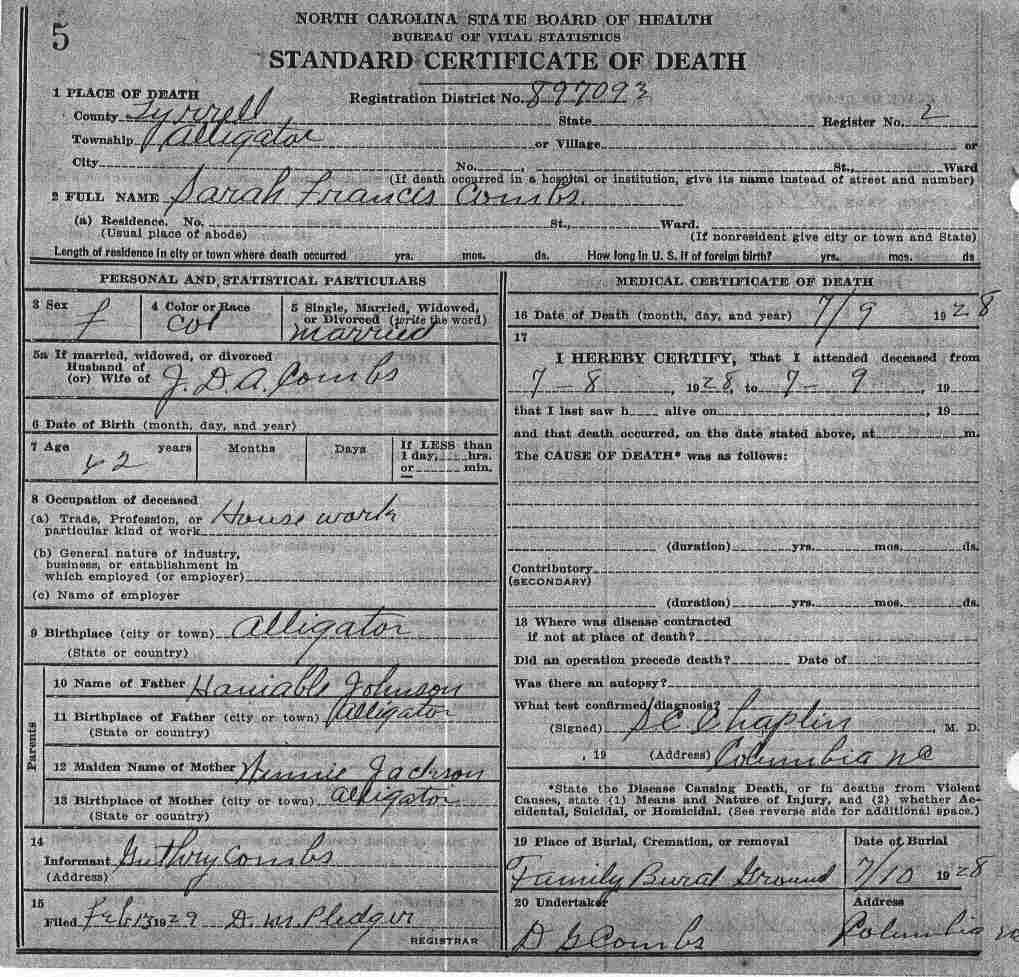 5
NORTH CAROLINA STATE BOARD OF HEALTH
BUREAU OF VITAL STATISTICS
STANDARD CERTIFICATE OF DEATH
1 PLACE OF DEATH
Registration District No. 897093
County Tyrrell State Register No. 2
Township Alligator or Village or
City No. , St., Ward
(If death occurred in a hospital or institution, give its name instead of street and number)
2 FULL NAME Sarah Francis Combs.
(a) Residence. No. St., Ward.
(Usual place of abode) (If nonresident give city or town and State)
Length of residence in city or town where death occurred yrs. mos. ds. How long in U. S. if of foreign birth? yrs. mos. ds
PERSONAL AND STATISTICAL PARTICULARS
3 Sex 4 Color or Race 5 Single, Married, Widowed,
or Divorced (write the word)
f col married
5a If married, widowed, or divorced
Husband of
(or) Wife of J. D. A. Combs
6 Date of Birth (month, day, and year)
7 Age years Months Days If LESS than
1 day, hrs.
or min.
62
8 Occupation of deceased
(a) Trade, Profession, or
particular kind of work House work
(b) General nature of industry,
business, or establishment in
which employed (or employer)
(c) Name of employer
9 Birthplace (city or town) Alligator
(State or country)
Parents
10 Name of Father Haniable Johnson
11 Birthplace of Father (city or town) Alligator
(State or country)
12 Maiden Name of Mother Winnie Jackson
13 Birthplace of Mother (city or town) Alligator
(State or country)
14
Informant Guthry Combs
(Address)
15
Filed Feb 13 1929 D. M. Pledger
REGISTRAR
MEDICAL CERTIFICATE OF DEATH
16 Date of Death (month, day, and year) 7/9 1928
17
I HEREBY CERTIFY, That I attended deceased from
7-8 1928, to 7-9, 19
that I last saw h alive on , 19
and that death occurred, on the date stated above, at m.
The CAUSE OF DEATH* was as follows:
(duration) yrs. mos. ds.
Contributory
(SECONDARY)
(duration) yrs. mos. ds.
18 Where was disease contracted
if not at place of death?
Did an operation precede death? Date of
Was there an autopsy?
What test confirmed diagnosis?
(Signed) S C Chaplin, M. D.
, 19 (Address) Columbia NC
*State the Disease Causing Death, or in deaths from Violent
Causes, state (1) Means and Nature of Injury, and (2) whether Ac-
cidental, Suicidal, or Homicidal. (See reverse side for additional space.)
19 Place of Burial, Cremation, or removal Date of Burial
Family Burial Ground 7/10 1928
20 Undertaker Address
D G Combs Columbia NC